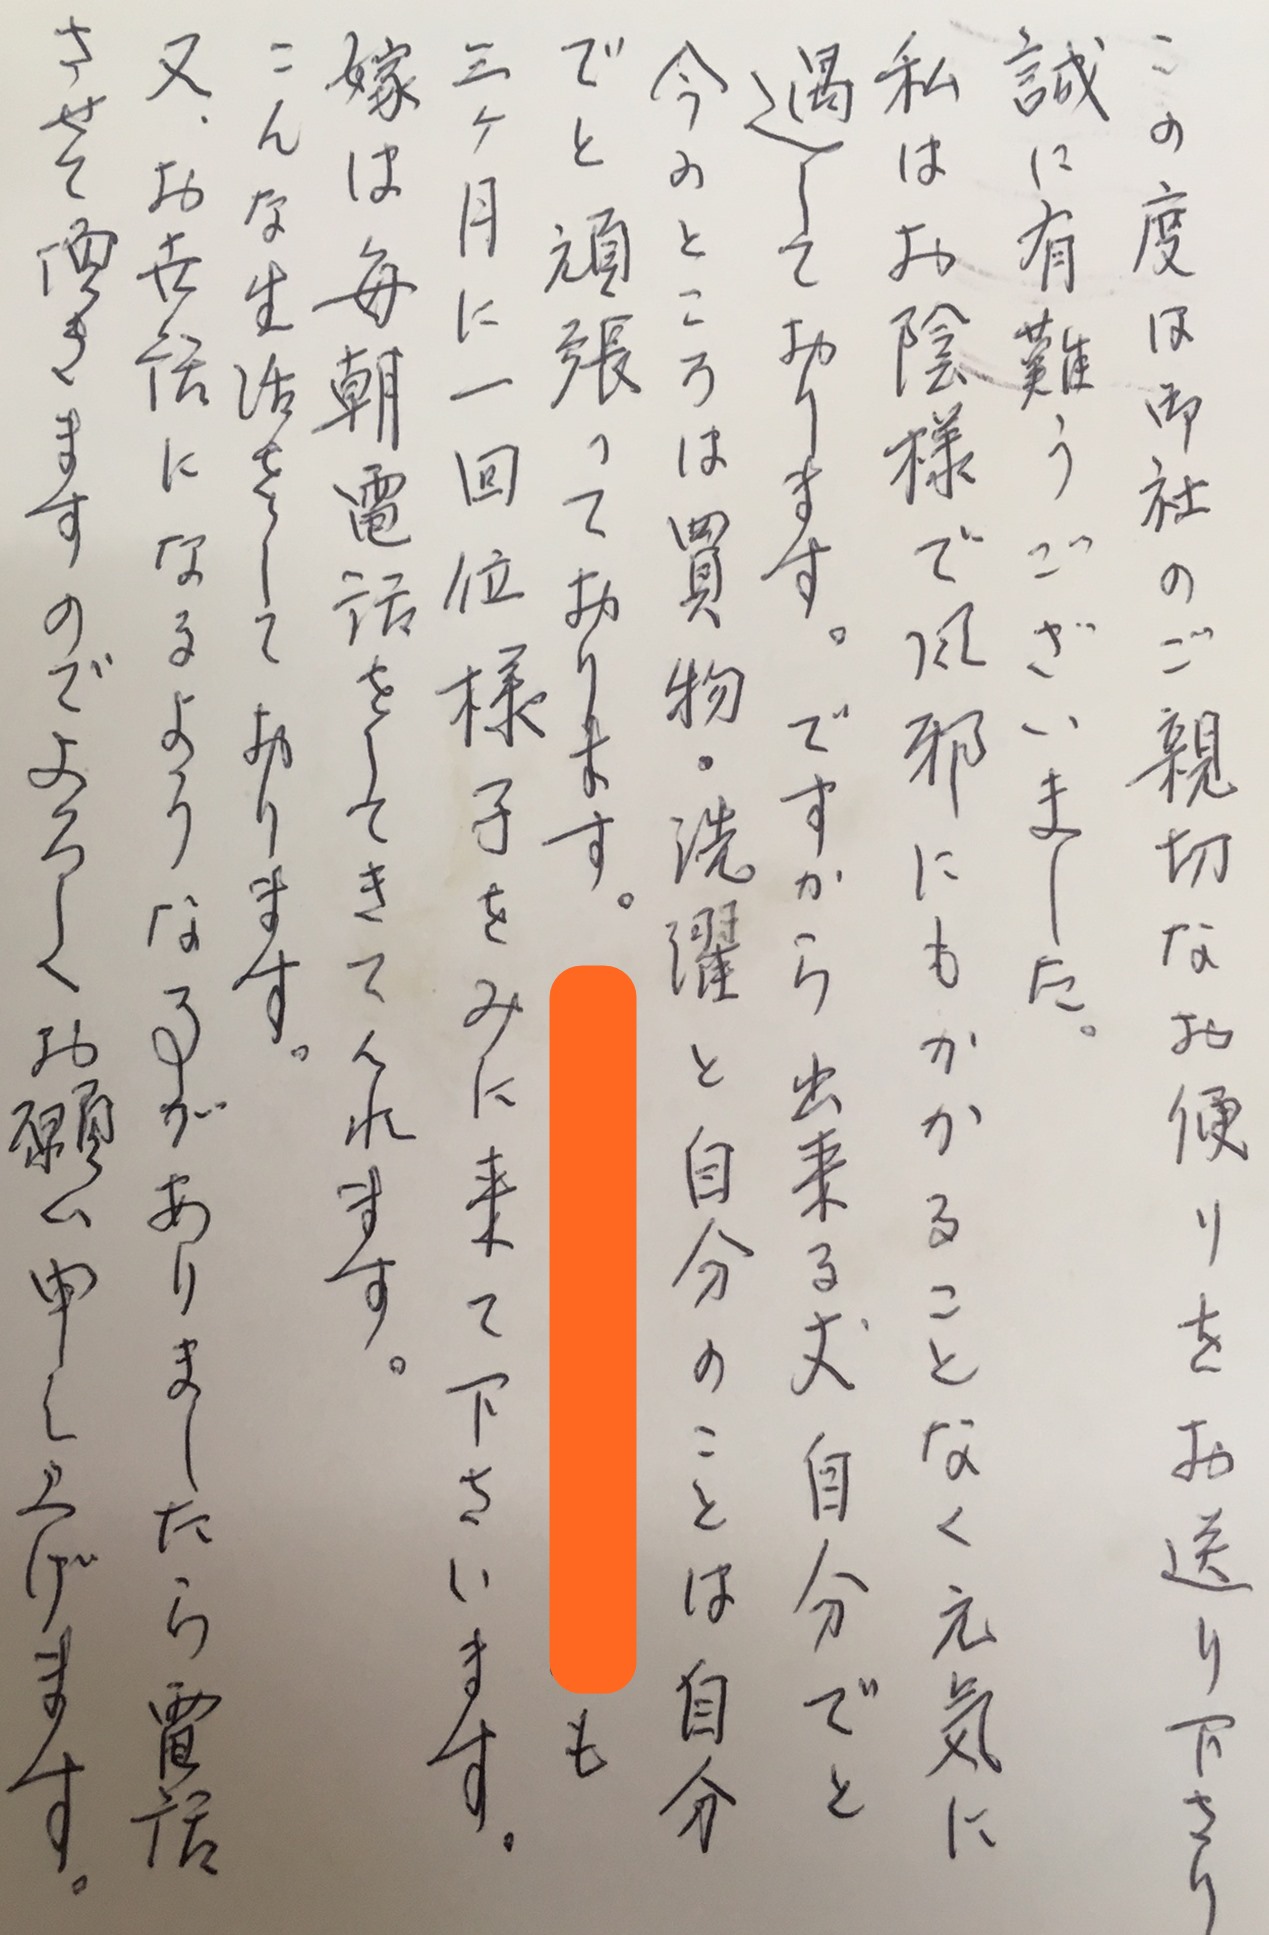 この度は御社のご親切なお便りをお送り下さり
誠に有難うございました。
私はお陰様で風邪にもかかることなく元気に
過しております。ですから出来る丈自分でと
今のところは買物・洗濯と自分のことは自分
でと頑張っております。も
三ヶ月に一回位様子をみに来て下さいます。
嫁は毎朝電話をしてきてくれます。
こんな生活をしております。
又、お世話になるようなるがありましたら電話
させて頂きますのでよろしくお願い申し上げます。